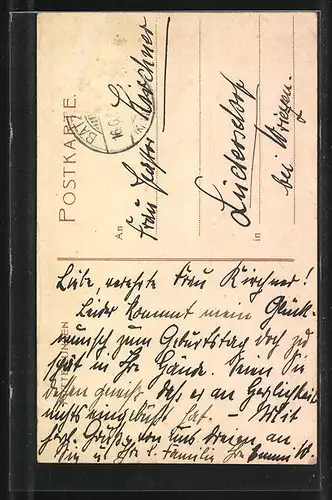 POSTKARTE.
BAD
16.6.
An
Frau Pastor Kirchner
in
Lüdersdorf
bei Wriezen.
MITTEILUNGEN
Liebe, verehrte Frau Kirchner!
Leider kommt mein Glück-
wunsch zum Geburtstag doch zu
spät in Ihre Hände. Seien Sie
dessen gewiß, daß er an Herzlichkeit
nichts eingebüßt hat. – Mit
herzl. Grüßen von uns dreien an
Sie u. Ihre l. Familie Ihre Emma W.